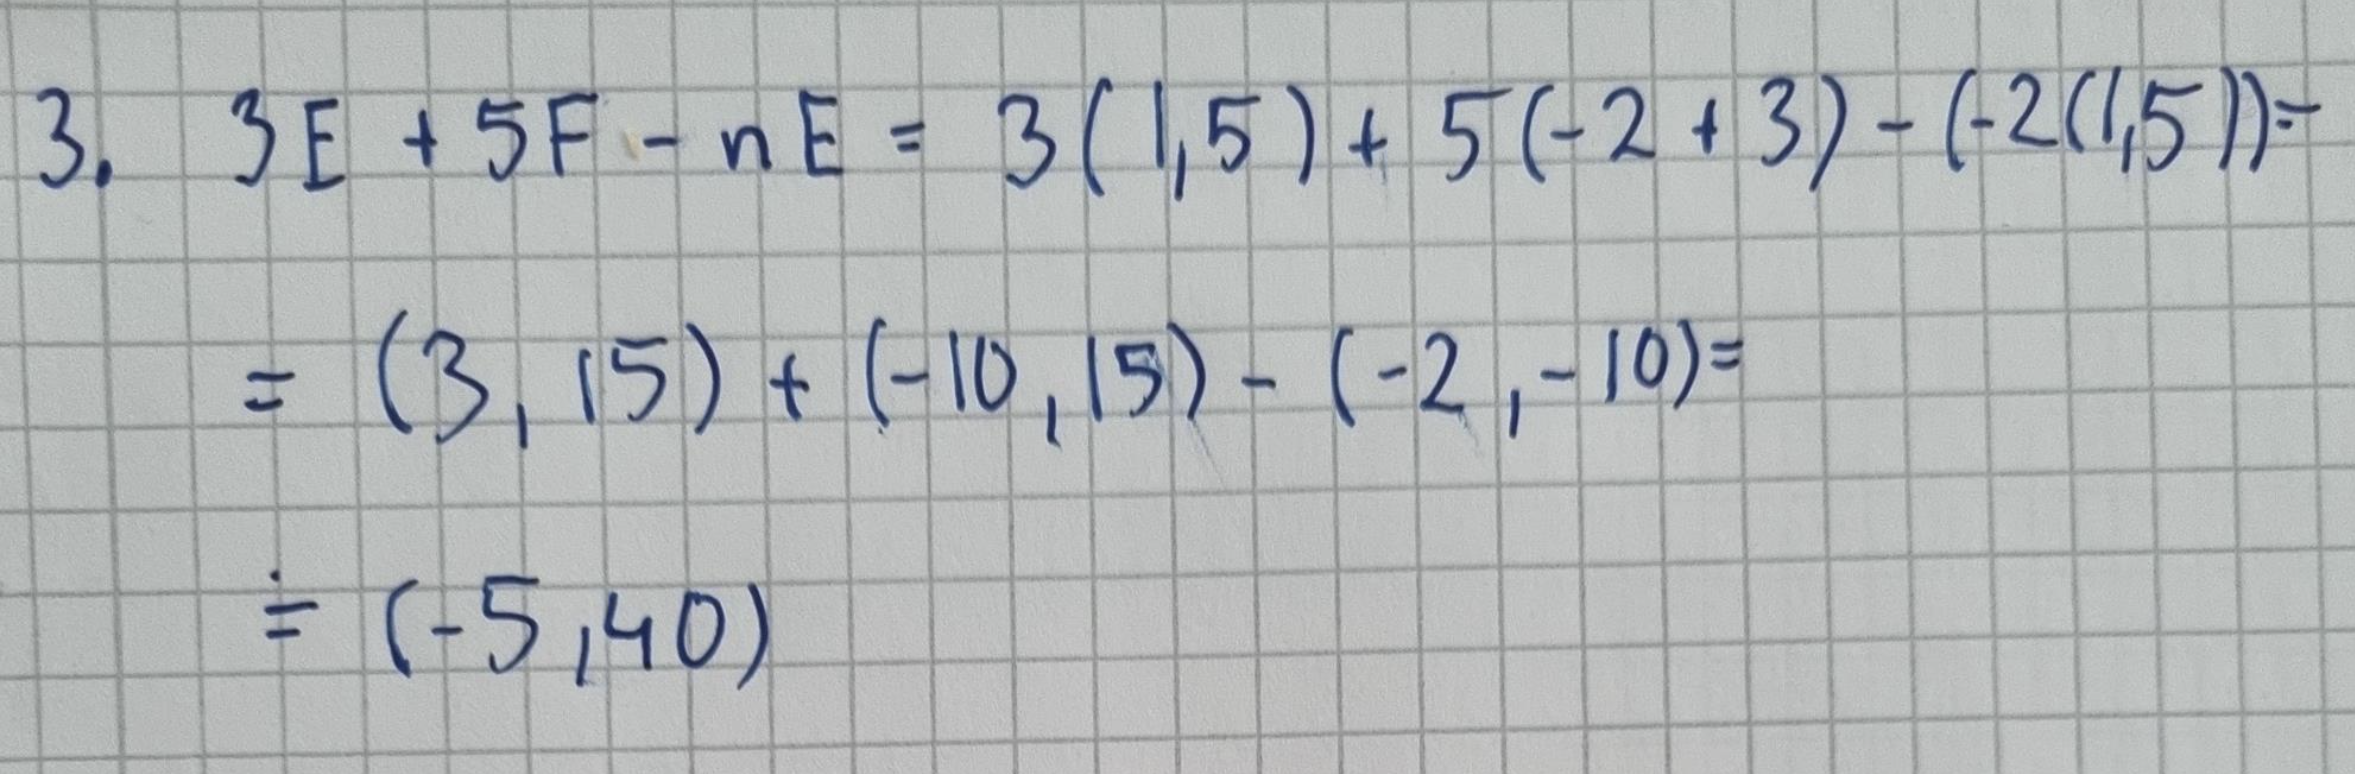 3. 3E + 5F - nE = 3(1,5) + 5(-2 + 3) - (-2(1,5))=
= (3, 15) + (-10, 15) - (-2, -10)=
= (-5, 40)